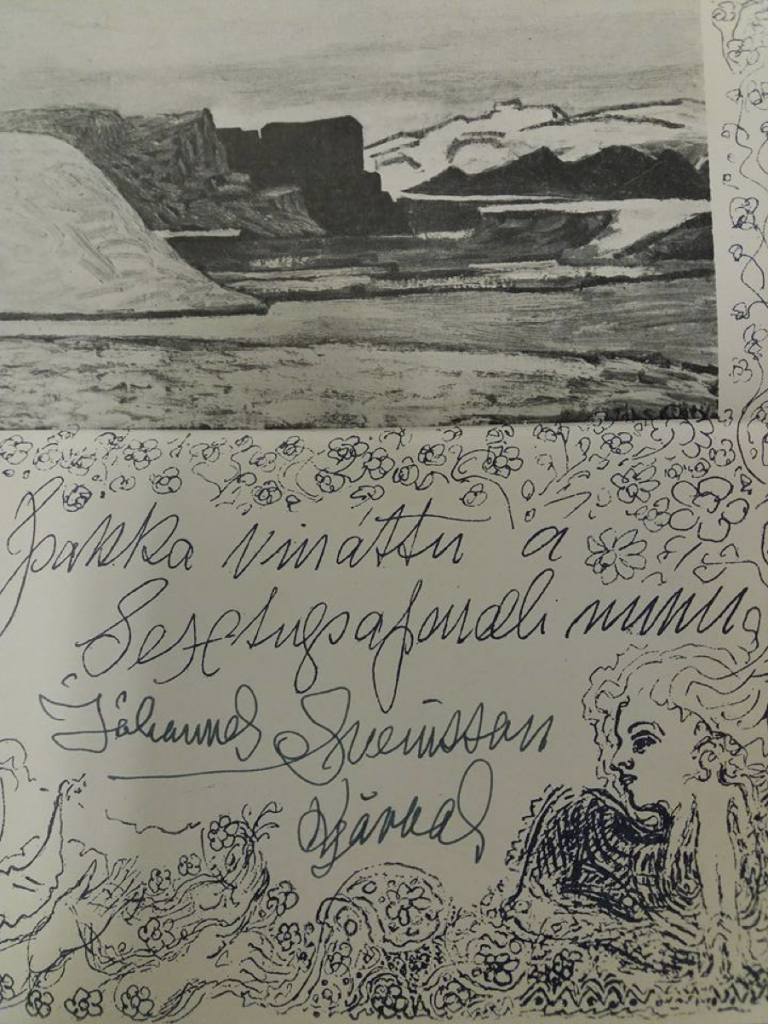 Þakka vináttu á
Sextugsafmæli mínu
Jóhannes Sveinsson
Kjarval